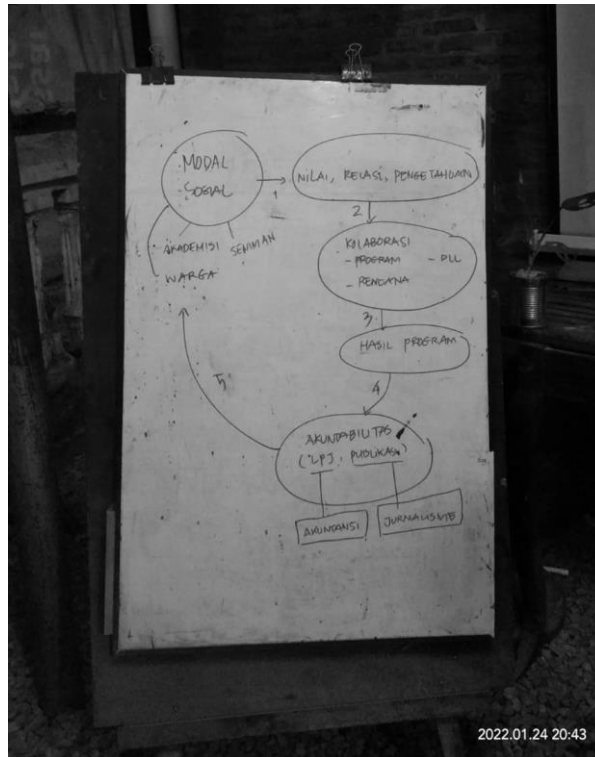 MODAL
SOSIAL
1
NILAI, RELASI, PENGETAHUAN
AKADEMISI
SENIMAN
WARGA
2
KOLABORASI
- PROGRAM
- DLL
- RENCANA
3
HASIL PROGRAM
4
5
AKUNTABILITAS
(LPJ, PUBLIKASI)
AKUNTANSI
JURNALISME
2022.01.24 20:43